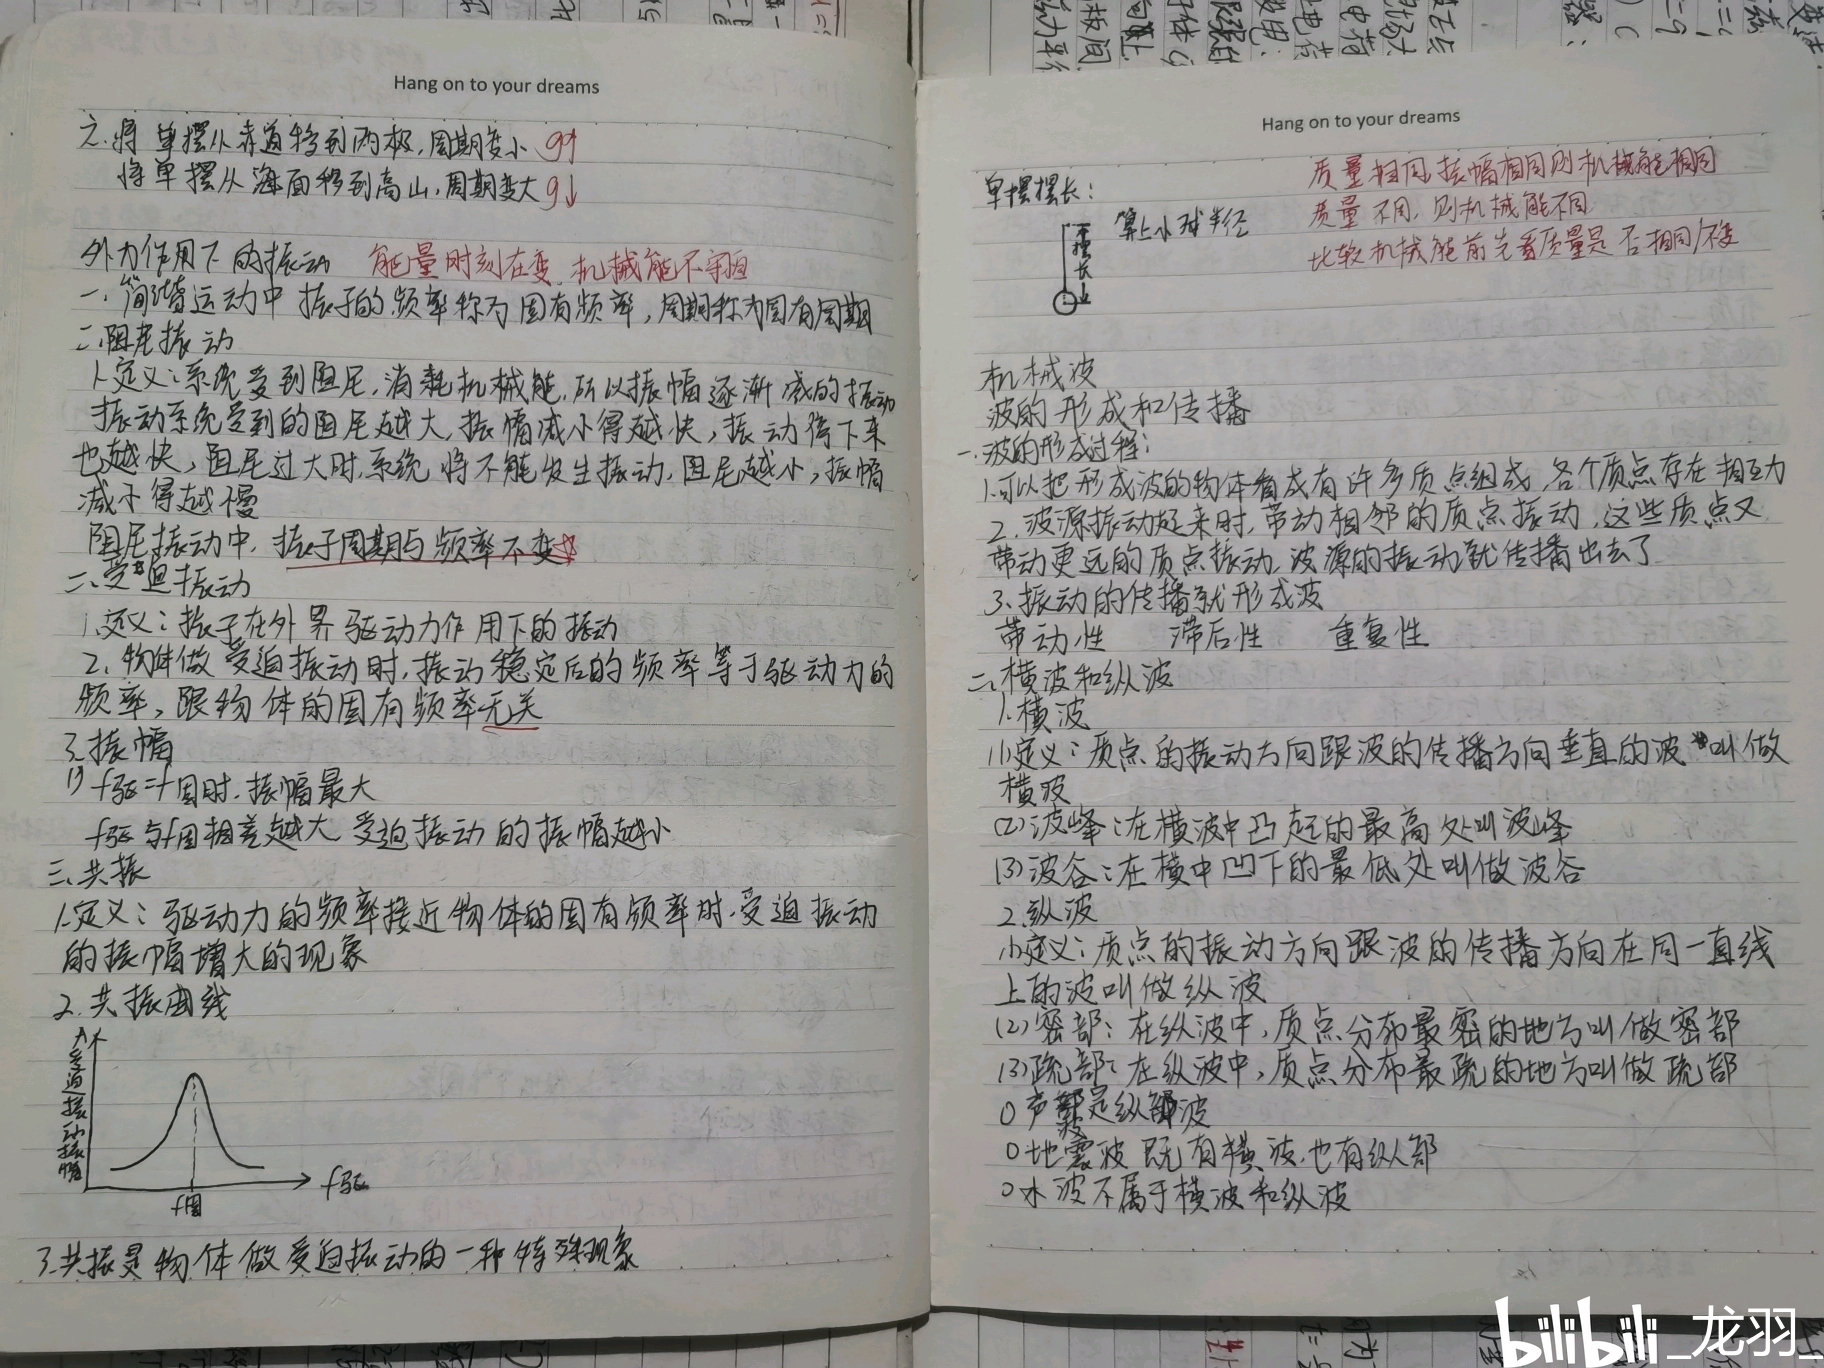 Hang on to your dreams
六.将单摆从赤道移到两极,周期变小 g↑
将单摆从海面移到高山,周期变大 g↓
外力作用下的振动 能量时刻在变 机械能不守恒
一.简谐运动中振子的频率称为固有频率,周期称为固有周期
二.阻尼振动
1.定义:系统受到阻尼,消耗机械能,所以振幅逐渐减的振动
振动系统受到的阻尼越大,振幅减小得越快,振动停下来
也越快,阻尼过大时,系统将不能发生振动,阻尼越小,振幅
减小得越慢
阻尼振动中,振子周期与频率不变
二、受迫振动
1.定义:振子在外界驱动力作用下的振动
2.物体做受迫振动时,振动稳定后的频率等于驱动力的
频率,跟物体的固有频率无关
3.振幅
1) f驱=f固时,振幅最大
f驱与f固相差越大 受迫振动的振幅越小
三、共振
1.定义:驱动力的频率接近物体的固有频率时,受迫振动
的振幅增大的现象
2.共振曲线
受迫振动振幅
f驱
f固
3.共振是物体做受迫振动的一种特殊现象
Hang on to your dreams
质量相同,振幅相同则机械能相同
单摆摆长:
质量不同,则机械能不同
摆长
算上小球半径
比较机械能前先看质量是否相同/不变
机械波
波的形成和传播
一.波的形成过程:
1.可以把形成波的物体看成有许多质点组成,各个质点存在相互力
2.波源振动起来时,带动相邻的质点振动,这些质点又
带动更远的质点振动,波源的振动就传播出去了
3.振动的传播就形成波
带动性 滞后性 重复性
二、横波和纵波
1.横波
(1)定义:质点的振动方向跟波的传播方向垂直的波 叫做
横波
(2)波峰:在横波中凸起的最高处叫波峰
(3)波谷:在横中凹下的最低处叫做波谷
2.纵波
(1)定义:质点的振动方向跟波的传播方向在同一直线
上的波叫做纵波
(2)密部:在纵波中,质点分布最密的地方叫做密部
(3)疏部:在纵波中,质点分布最疏的地方叫做疏部
○声波是纵波
○地震波既有横波,也有纵部
○水波不属于横波和纵波
bilibili_龙羽_